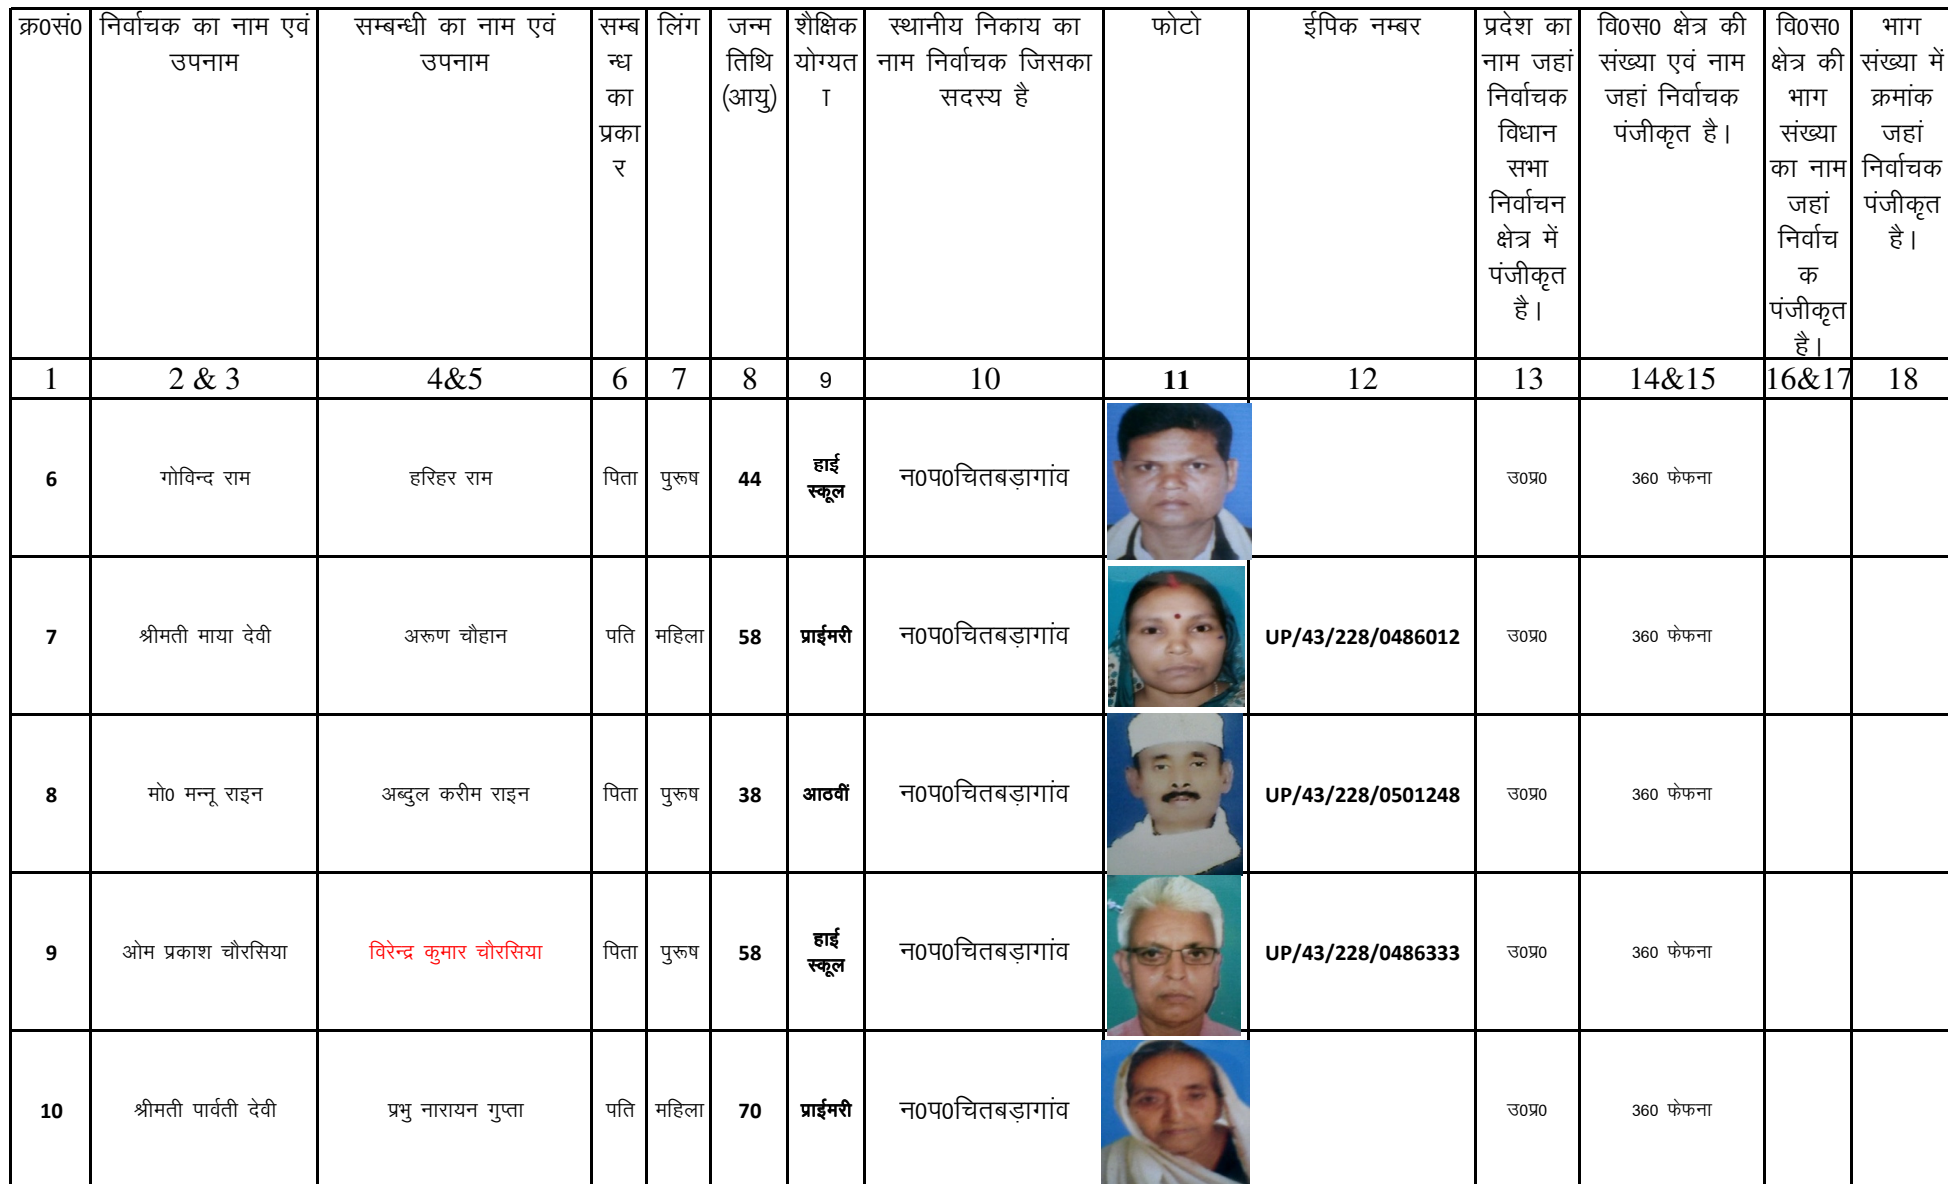 क्र0सं0 निर्वाचक का नाम एवं उपनाम सम्बन्धी का नाम एवं उपनाम सम्बन्ध का प्रकार लिंग जन्म तिथि (आयु) शैक्षिक योग्यता स्थानीय निकाय का नाम निर्वाचक जिसका सदस्य है फोटो ईपिक नम्बर प्रदेश का नाम जहां निर्वाचक विधान सभा निर्वाचन क्षेत्र में पंजीकृत है। वि0स0 क्षेत्र की संख्या एवं नाम जहां निर्वाचक पंजीकृत है। वि0स0 क्षेत्र की भाग संख्या का नाम जहां निर्वाचक पंजीकृत है। भाग संख्या में क्रमांक जहां निर्वाचक पंजीकृत है।
1 2 & 3 4&5 6 7 8 9 10 11 12 13 14&15 16&17 18
6 गोविन्द राम हरिहर राम पिता पुरूष 44 हाई स्कूल न0प0चितबड़ागांव उ0प्र0 360 फेफना
7 श्रीमती माया देवी अरूण चौहान पति महिला 58 प्राईमरी न0प0चितबड़ागांव UP/43/228/0486012 उ0प्र0 360 फेफना
8 मो0 मन्नू राइन अब्दुल करीम राइन पिता पुरूष 38 आठवीं न0प0चितबड़ागांव UP/43/228/0501248 उ0प्र0 360 फेफना
9 ओम प्रकाश चौरसिया विरेन्द्र कुमार चौरसिया पिता पुरूष 58 हाई स्कूल न0प0चितबड़ागांव UP/43/228/0486333 उ0प्र0 360 फेफना
10 श्रीमती पार्वती देवी प्रभु नारायन गुप्ता पति महिला 70 प्राईमरी न0प0चितबड़ागांव उ0प्र0 360 फेफना